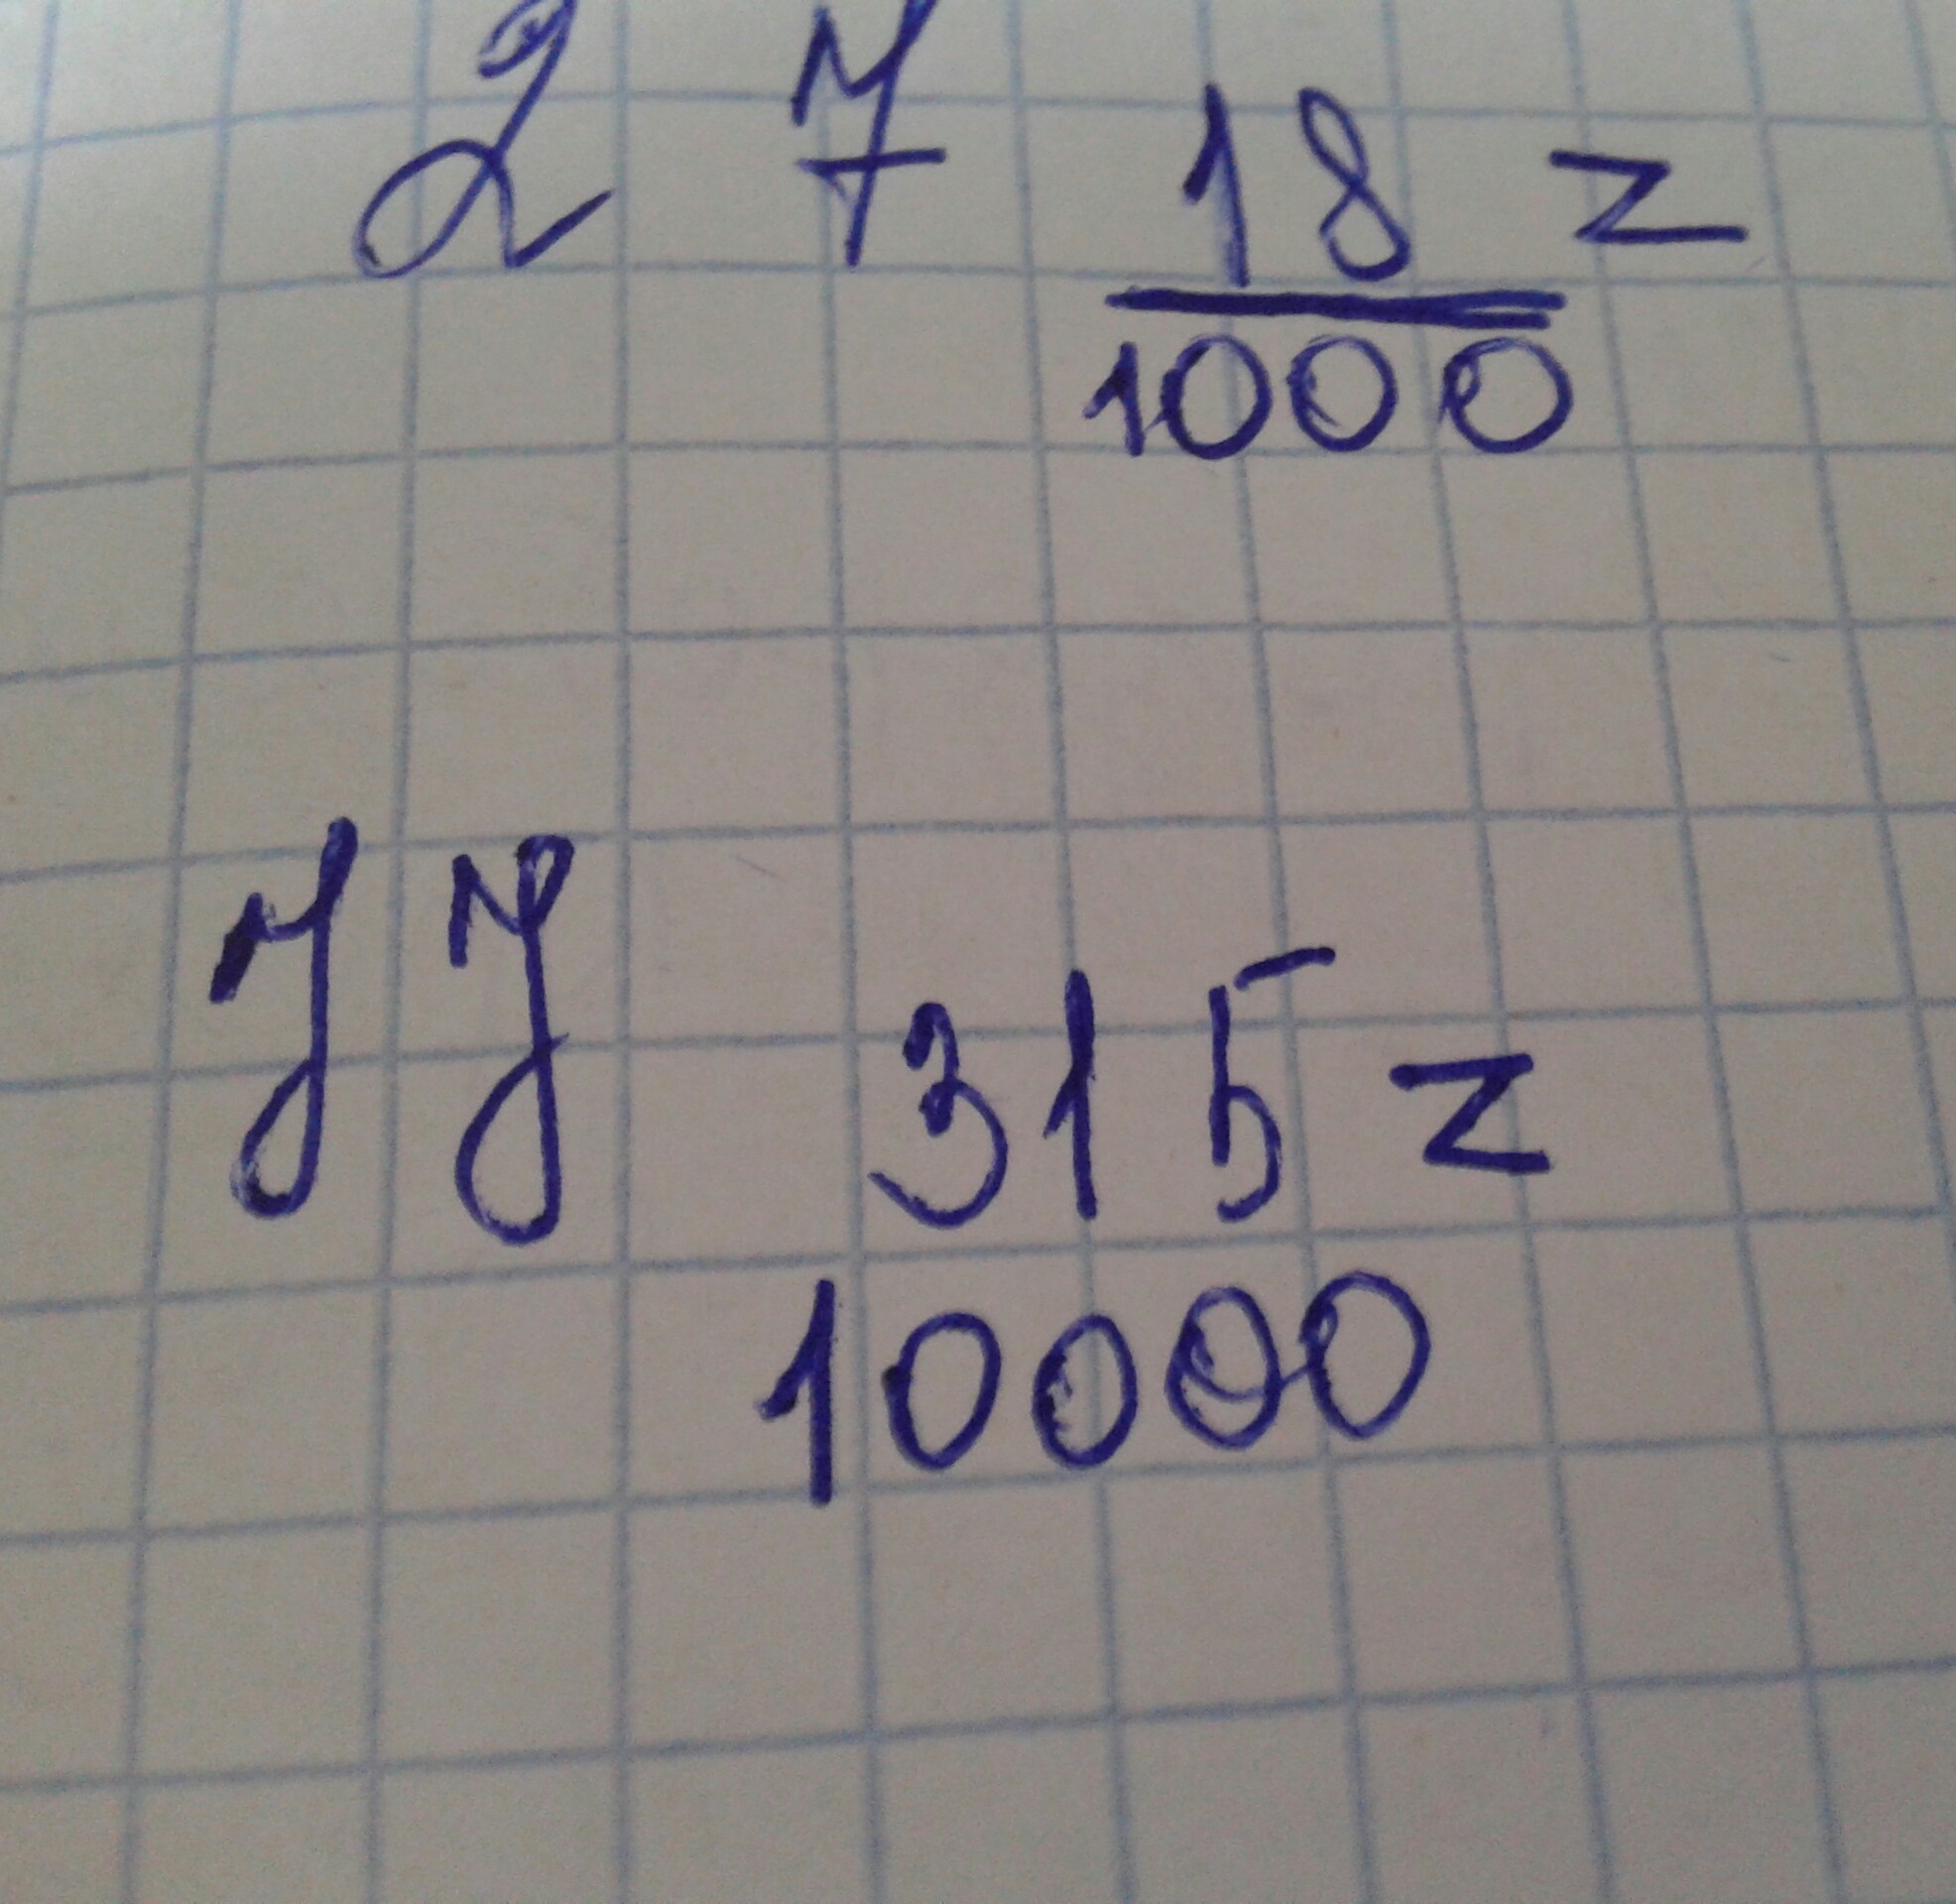 2 7 18 =
1000
315 =
10000